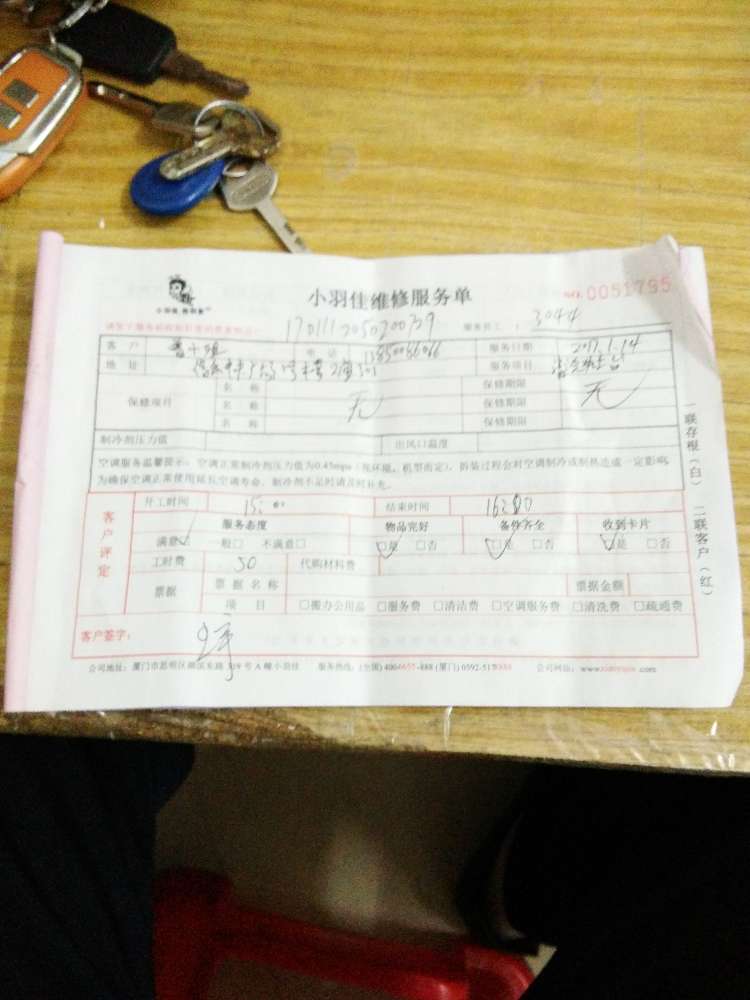 小羽佳维修服务单
NO. 0051795
170111205020039
服务员工：3044
客户 电话 服务日期 2017.1.14
地址 服务项目
保修项目 名称 无 保修期限 无
名称 保修期限
名称 保修期限
制冷剂压力值 出风口温度
空调服务温馨提示：空调正常制冷剂压力值为0.45mpa（视环境、机型而定），拆装过程会对空调制冷或制热造成一定影响，
为确保空调正常使用延长空调寿命，制冷剂不足时请及时补充。
开工时间 15:00 结束时间 16:00
客户评定
服务态度 物品完好 备件齐全 收到卡片
满意 一般□ 不满意□ □是 □否 □是 □否 □是 □否
工时费 50 代购材料费
票据 票据名称 票据金额
项目 □搬办公用品 □服务费 □清洁费 □空调服务费 □清洗费 □疏通费
客户签字：
公司地址：厦门市思明区湖滨东路 号A幢小羽佳 服务热线：(全国) 4004655-888 (厦门) 公司网站：
一联存根（白） 二联客户（红）